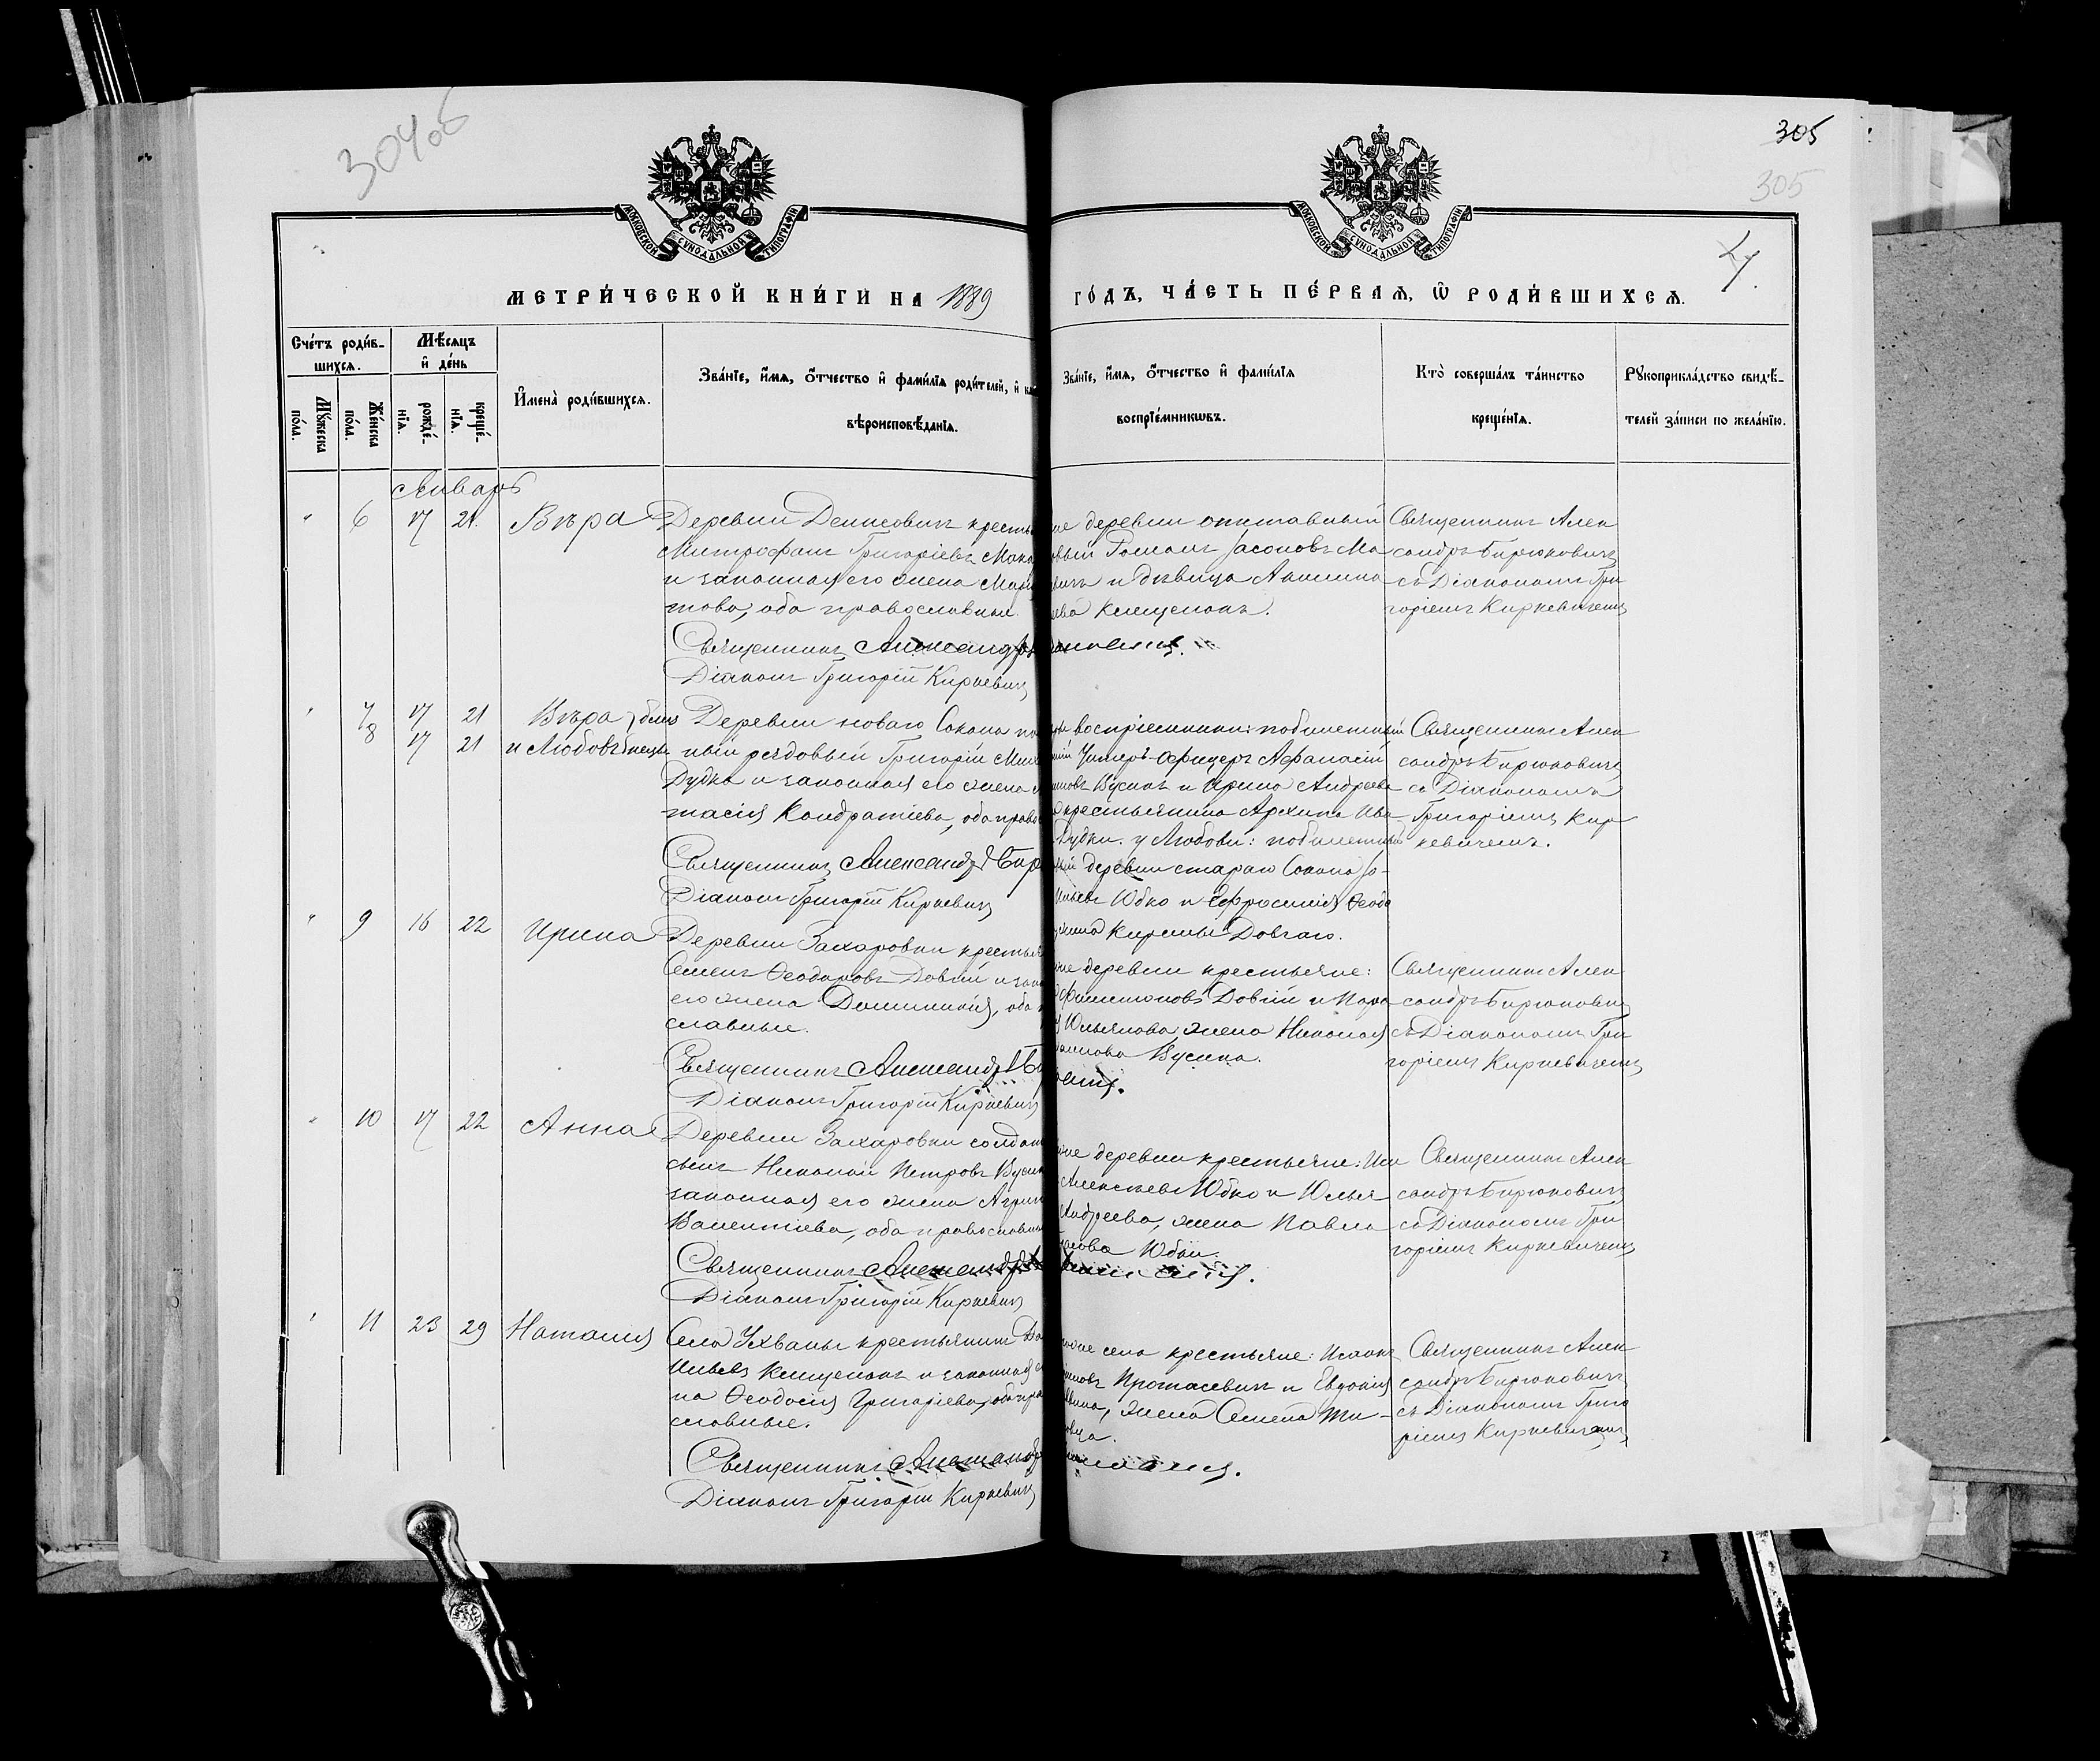 304об
305
305
МОСКОВСКОЙ СѴНОДАЛЬНОЙ ТИПОГРАФІИ
МОСКОВСКОЙ СѴНОДАЛЬНОЙ ТИПОГРАФІИ
МЕТРИ́ЧЕСКОЙ КНИ́ГИ НА 1889
ГО́ДЪ, ЧА́СТЬ ПЕ́РВАѦ, Ѽ РОДИ́ВШИХСѦ.
Сче́тъ роди́в-
шихсѧ.
Мѣ́сѧцъ
и҆ де́нь
Мꙋ́жеска
по́ла.
Же́нска
по́ла.
рожде́-
нїѧ.
креще́-
нїѧ.
И҆мена̀ роди́вшихсѧ.
Зва́нїе, и҆́мѧ, ѻ҆́тчество и҆ фами́лїѧ роди́телей, и҆ как
вѣроисповѣ́данїѧ.
Зва́нїе, и҆́мѧ, ѻ҆́тчество и҆ фами́лїѧ
воспрїе́мникѡвъ.
Кто̀ соверша́лъ та́инство
креще́нїѧ.
Рꙋкоприкла́дство свидѣ́-
телей за́писи по жела́нїю.
Январь
" 6 17 21. Вѣра
Деревни Денисовичъ кресть
Митрофанъ Григоріевъ Мака
и законная его жена Мар
това, оба православныи
Священникъ Александръ
Діаконъ Григорій Киркевичъ
ой же деревни
Романъ Іасоновъ Ма
и дѣвица Акилина
Клещенокъ.
Священникъ Алек
сандръ Бирюковичъ
съ Діакономъ Гри
горіемъ Киркевичемъ
" 7 17 21 Вѣра
8 17 21 и Любовь близнецы
Деревни новаго Сокола
ный рядовый Григорій Мих
Дудка и законная его жена
тасія Кондратіева, оба право
Священникъ Александръ Бир
Діаконъ Григорій Киркевичъ
воспріемники: побилетный
Унтеръ-Офицеръ Афанасій
Вусикъ и Ирина Андреева
крестьянина Архипа Ива
Дудки. у Любови: побилетный
деревни стараго Сокола Іо-
Юбко и Ефросинія Ѳеодо
Кириллы Довгаго.
Священникъ Алек
сандръ Бирюковичъ
съ Діакономъ
Григоріемъ Кир
кевичемъ.
" 9 16 22 Ирина
Деревни Захаровки крестья
Семенъ Ѳеодоровъ Довгій и зак
его жена Домникія, оба
славные.
Священникъ Александръ Би
Діаконъ Григорій Киркевичъ
деревни крестьяне:
Довгій и Пара
Юльянова жена Николая
Вусика.
Священникъ Алек
сандръ Бирюковичъ
съ Діакономъ Гри
горіемъ Киркевичемъ
" 10 17 22 Анна
Деревни Захаровки солдат
сынъ Николай Петровъ Вусик
законная его жена Агрип
Валентіева, оба православны
Священникъ Александръ
Діаконъ Григорій Киркевичъ
деревни крестьяне:
Алексѣевъ Юбко и Юлья
Андреева, жена Павла
Юбки.
Священникъ Алек
сандръ Бирюковичъ
съ Діакономъ Гри
горіемъ Киркевичемъ
" 11 23 29 Наталія
Села Ухвалы крестьянинъ
Ильевъ Клещенокъ и законная
на Ѳеодосія Григоріева, оба пра
славные.
Священникъ Александръ
Діаконъ Григорій Киркевичъ
села крестьяне: Исаакъ
Протасевичъ и Евдокія
жена Семена
Священникъ Алек
сандръ Бирюковичъ
съ Діакономъ Григо
ріемъ Киркевичемъ